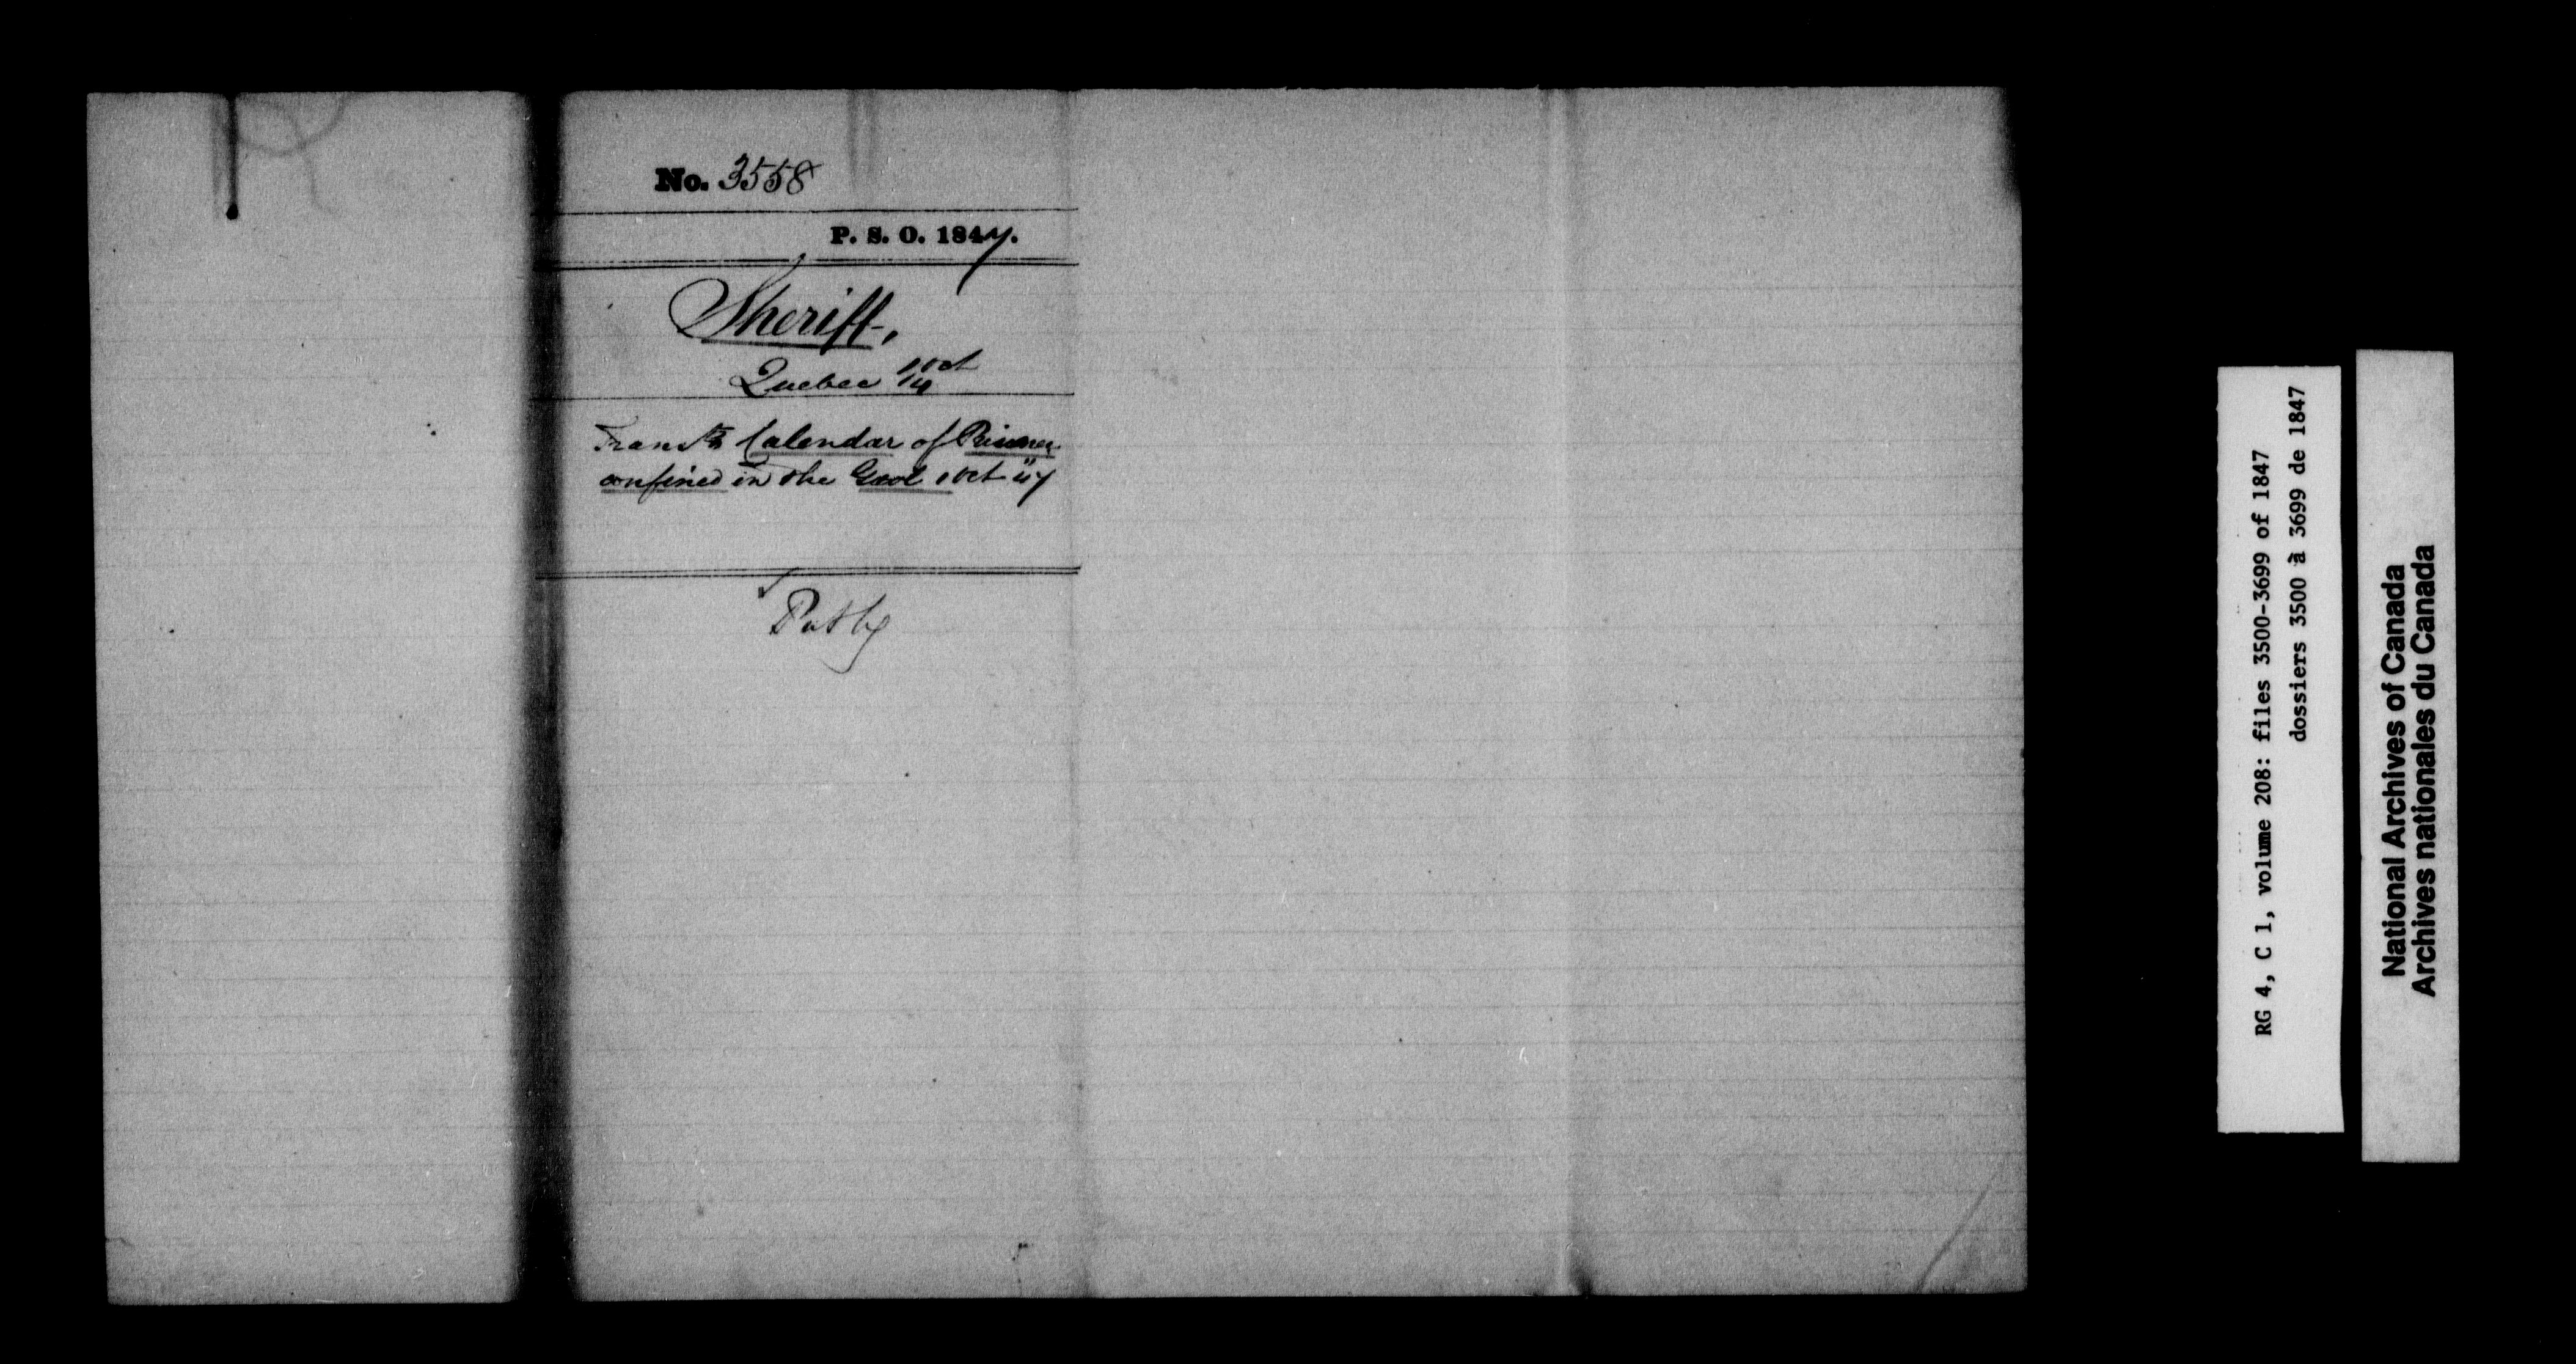 No. 3558
P. S. O. 1847.
Sheriff,
Quebec Oct
Calendar of Prisoners
confined in the Gaol Oct
RG 4, C 1, volume 208: files 3500-3699 of 1847
dossiers 3500 à 3699 de 1847
National Archives of Canada
Archives nationales du Canada